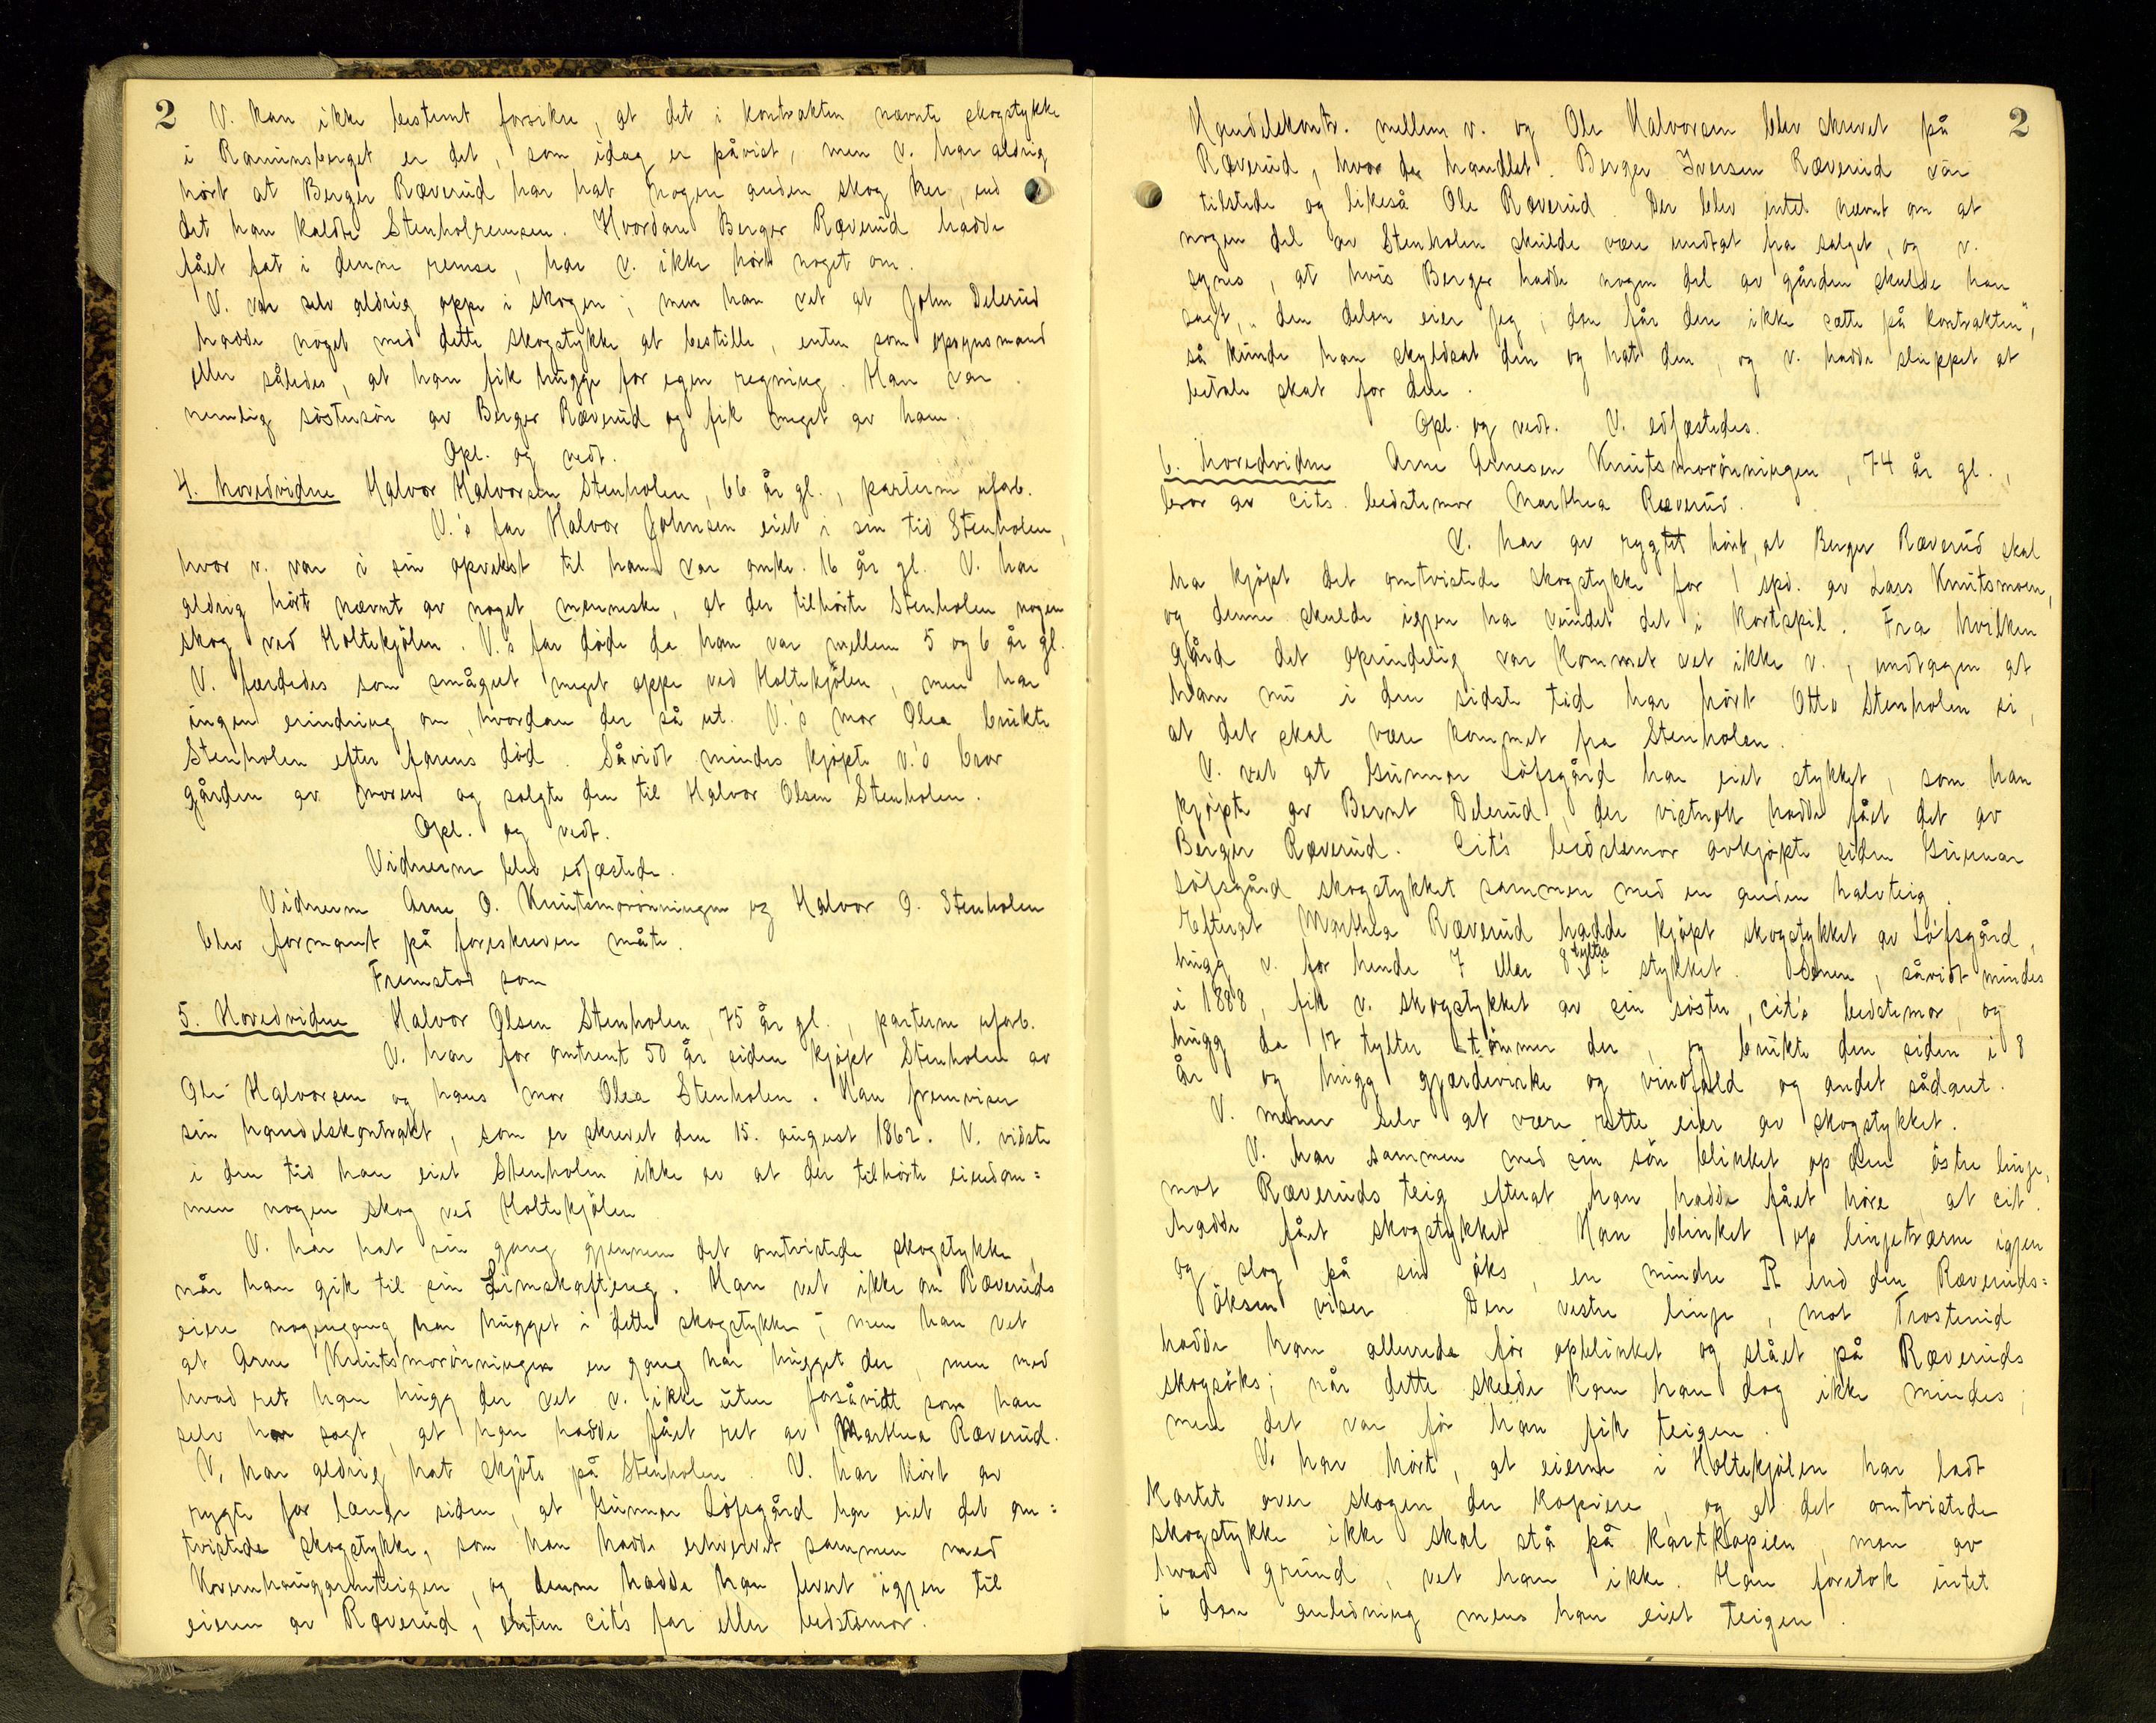 2
V. kan ikke bestemt forsikre, at det i kontrakten nævnte skogstykke
i Raminsberget er det, som idag er påvist, men v. har aldrig
hört at Berger Ræverud har hat nogen anden skog her, end
det han kaldte Stenholremsen. Hvordan Berger Ræverud hadde
fået fat i denne remse, har v. ikke hört noget om.
V. var selv aldrig oppe i skogen; men han vet at John Delerud
hadde noget med dette skogstykke at bestille, enten som opsynsmand
eller således, at han fik hugge for egen regning. Han var
nemlig söstersön av Berger Ræverud og fik meget av ham.
Opl. og vedt.
4. hovedvidne Halvor Halvorsen Stenholen, 66 år gl., parterne uforb.
V.'s far Halvor Johnsen eiet i sin tid Stenholen,
hvor v. var i sin opvekst til han var omkr. 16 år gl. V. har
aldrig hört nævnt av noget menneske, at der tilhörte Stenholen nogen
skog ved Holtekjölen. V.'s far döde da han var mellem 5 og 6 år gl.
V. færdedes som smågut meget oppe ved Holtekjölen, men har
ingen erindring om, hvordan der så ut. V.'s mor Olea brukte
Stenholen efter farens död. Såvidt mindes kjöpte v.'s bror
gården av moren og solgte den til Halvor Olsen Stenholen.
Opl. og vedt.
Vidnerne blev edfæstede.
Vidnerne Arne A. Knutsmorönningen og Halvor O. Stenholen
blev formant på foreskreven måte.
Fremstod som
5. Hovedvidne Halvor Olsen Stenholen, 75 år gl., parterne uforb.
V. har for omtrent 50 år siden kjöpt Stenholen av
Ole Halvorsen og hans mor Olea Stenholen. Han fremviser
sin handelskontrakt, som er skrevet den 15. august 1862. V. vidste
i den tid han eiet Stenholen ikke av at der tilhörte eiendom=
men nogen skog ved Holtekjölen
V. har hat sin gang gjennem det omtvistede skogstykke,
når han gik til sin Limskafteng. Han vet ikke om Ræveruds
eiere nogengang har hugget i dette skogstykke; men han vet
at Arne Knutsmorönningen en gang har hugget der, men med
hvad ret han hugg der vet v. ikke uten forsåvidt som han
selv har sagt, at han hadde fået ret av Marthea Ræverud.
V. har aldrig hat skjöte på Stenholen. V. har hört av
rygte for længe siden, at Gunnar Löfsgård har eiet det om=
tvistede skogstykke, som han hadde erhvervet sammen med
Kvernhaugarnteigen, og denne hadde han levert igjen til
eieren av Ræverud, enten cit's far eller bedstemor.
2
Handelskontr. mellem v. og Ole Halvorsen blev skrevet på
Ræverud, hvor de handlet. Berger Iversen Ræverud var
tilstede og likeså Ole Ræverud. Der blev intet nævnt om at
nogen del av Stenholen skulde være undtat fra salget, og v.
synes, at hvis Berger hadde nogen del av gården skulde han
sagt, "den delen eier jeg; den får dere ikke sætte på kontrakten",
så kunde han skyldsat den og hat den, og v. hadde sluppet at
betale skat for den.
Opl. og vedt. V. edfæstedes.
6. hovedvidne Arne Arnesen Knutsmorönningen, 74 år gl.,
bror av cits. bedstemor Marthea Ræverud.
V. har av rygtet hört, at Berger Ræverud skal
ha kjöpt det omtvistede skogstykke for 1 spd. av Lars Knutsmoen,
og denne skulde igjen ha vundet det i kortspil. Fra hvilken
gård det oprindelig var kommet vet ikke v., undtagen at
han nu i den sidste tid har hört Otto Stenholen si,
at det skal være kommet fra Stenholen.
V. vet at Gunnar Löfsgård har eiet stykket, som han
kjöpte av Bernt Delerud, der vistnok hadde fået det av
Berger Ræverud. Cit's bedstemor avkjöpte siden Gunnar
Löfsgård skogstykket sammen med en anden halvteig.
Efterat Marthea Ræverud hadde kjöpt skogstykket av Löfsgård,
hugg v. for hende 7 eller 8 tylfter i stykket. Senere, såvidt mindes
i 1888, fik v. skogstykket av sin söster, cit's bedstemor, og
hugg da 17 tylter tömmer der, og brukte den siden i 8
år og hugg gjærdevirke og vindfald og andet sådant.
V. mener selv at være rette eier av skogstykket.
V. har sammen med sin sön blinket op den östre linje,
mot Ræveruds teig efterat han hadde fået höre, at cit.
hadde fået skogstykket. Han blinket op linjetrærne igjen
og slog på sin öks, en mindre R end den Ræveruds=
öksen viser. Den vestre linje, mot Trosterud
hadde han allerede för opblinket og slået på Ræveruds
skogsöks; når dette skede kan han dog ikke mindes;
men det var för han fik teigen.
V. har hört, at eierne i Holtekjölen har ladt
kartet over skogen der kopiere, og at det omtvistede
skogstykke ikke skal stå på kartkopien, men av
hvad grund, vet han ikke. Han foretok intet
i den anledning mens han eiet teigen.